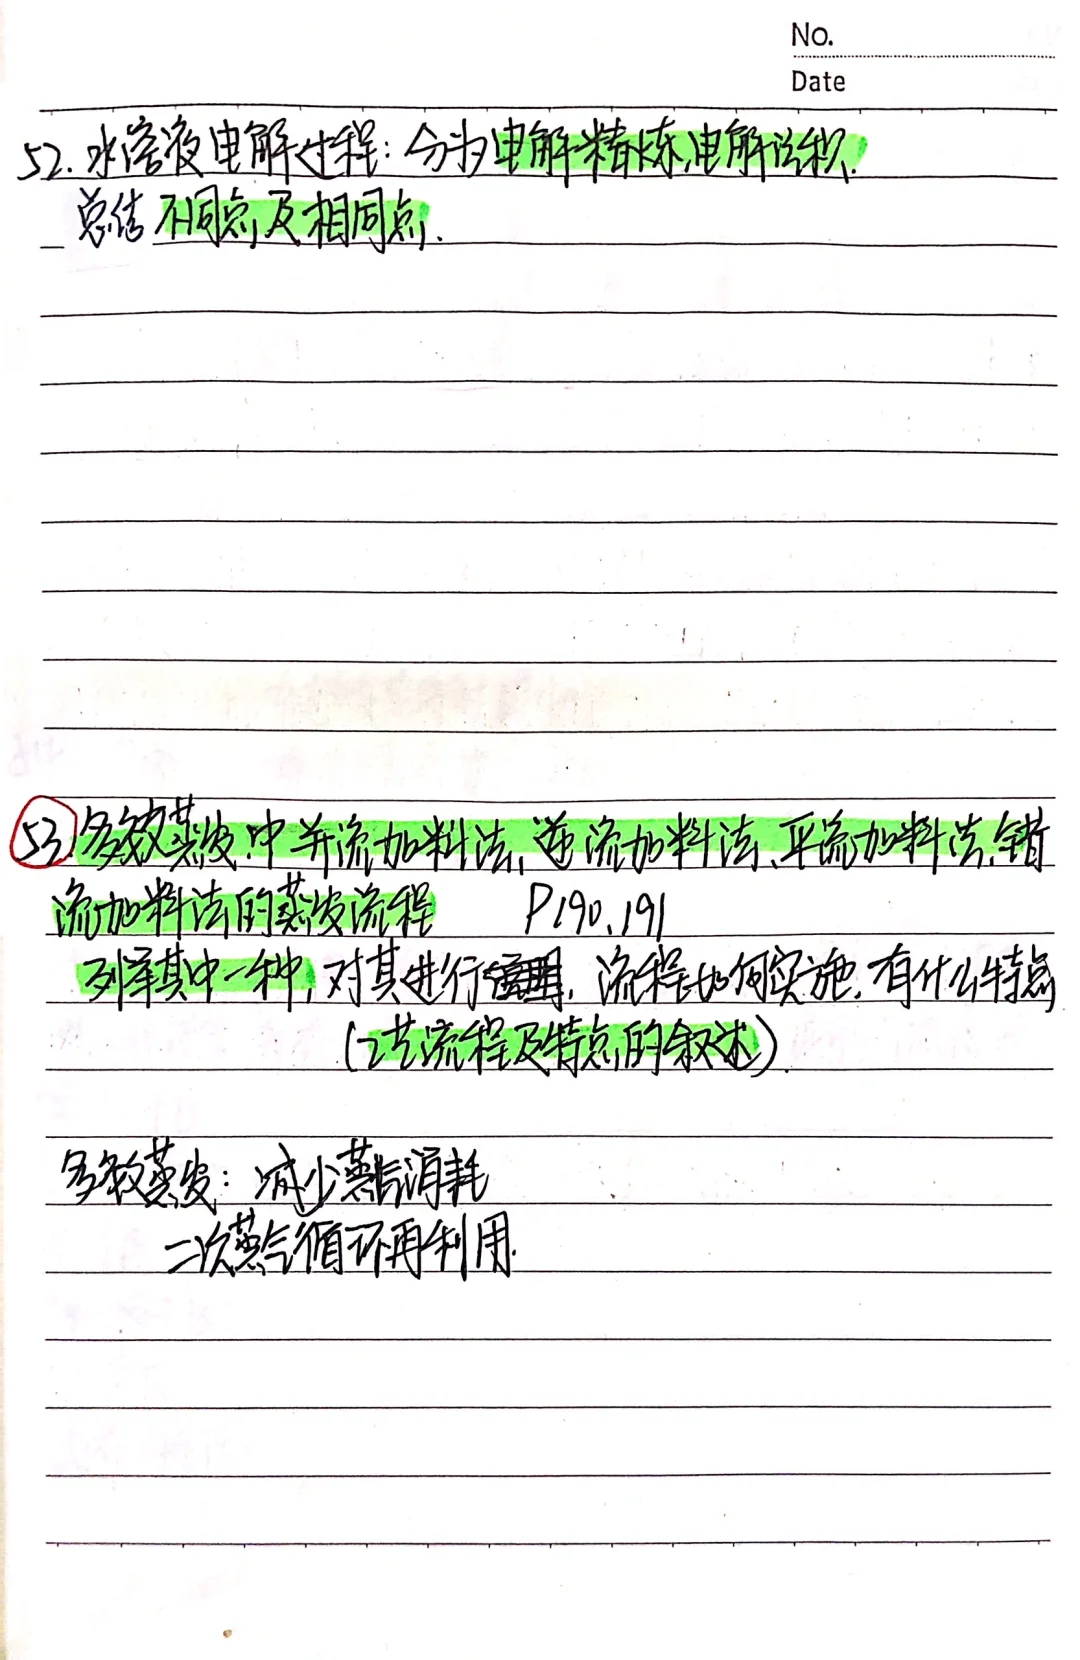 No.
Date
52. 水溶液电解过程: 分为电解精炼、电解沉积.
总结 不同点及相同点.
53 多效蒸发中并流加料法、逆流加料法、平流加料法、错
流加料法的蒸发流程 P190、191
列举其中一种, 对其进行 流程如何实施. 有什么特点
(工艺流程及特点的叙述).
多效蒸发: 减少蒸汽消耗
二次蒸气循环再利用.